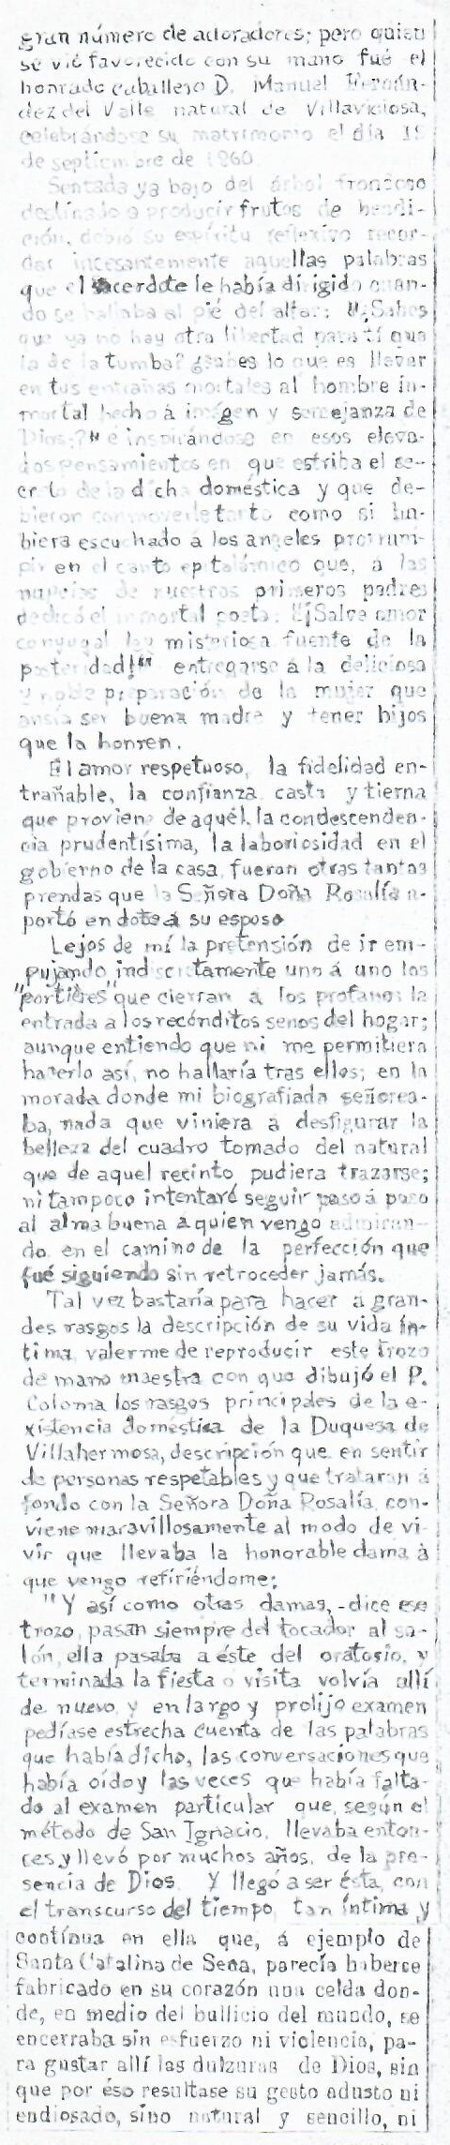 gran número de adoradores; pero quien
se vió favorecido con su mano fué el
honrado caballero D. Manuel Hernán-
dez del Valle natural de Villaviciosa,
celebrándose su matrimonio el día 15
de septiembre de 1860
Sentada ya bajo del árbol frondoso
destinado a producir frutos de bendi-
ción, debió su espíritu reflexivo recor-
dar incesantemente aquellas palabras
que el sacerdote le había dirigido cuan-
do se hallaba al pié del altar: "¿Sabes
que ya no hay otra libertad para tí que
la de la tumba? ¿sabes lo que es llevar
en tus entrañas mortales al hombre in-
mortal hecho á imágen y semejanza de
Dios?" e inspirándose en esos eleva-
dos pensamientos en que estriba el se-
creto de la dicha doméstica y que de-
bieron conmoverle tanto como si hu-
biera escuchado a los angeles prorrum-
pir en el canto epitalámico que, a las
nupcias de nuestros primeros padres
dedicó el inmortal poeta: "¡Salve amor
conyugal ley misteriosa fuente de la
posteridad!" entregarse á la deliciosa
y noble preparación de la mujer que
ansía ser buena madre y tener hijos
que la honren.
El amor respetuoso, la fidelidad en-
trañable, la confianza casta y tierna
que proviene de aquél, la condescenden-
cia prudentísima, la laboriosidad en el
gobierno de la casa, fueron otras tantas
prendas que la Señora Doña Rosalía a-
portó en dote á su esposo
Lejos de mí la pretensión de ir em-
pujando indiscretamente uno á uno los
"portieres" que cierran a los profanos la
entrada a los recónditos senos del hogar;
aunque entiendo que ni me permitiera
hacerlo así, no hallaría tras ellos; en la
morada donde mi biografiada señorea-
ba, nada que viniera a desfigurar la
belleza del cuadro tomado del natural
que de aquel recinto pudiera trazarse;
ni tampoco intentaré seguir paso á paso
al alma buena a quien vengo admiran-
do en el camino de la perfección que
fué siguiendo sin retroceder jamás.
Tal vez bastaría para hacer a gran-
des rasgos la descripción de su vida ín-
tima, valerme de reproducir este trozo
de mano maestra con que dibujó el P.
Coloma los rasgos principales de la e-
xistencia doméstica de la Duquesa de
Villahermosa, descripción que en sentir
de personas respetables y que trataran á
fondo con la Señora Doña Rosalía, con-
viene maravillosamente al modo de vi-
vir que llevaba la honorable dama á
que vengo refiriéndome:
"Y así como otras damas, -dice ese
trozo, pasan siempre del tocador al sa-
lón, ella pasaba a éste del oratorio, y
terminada la fiesta o visita volvía allí
de nuevo, y en largo y prolijo examen
pedíase estrecha cuenta de las palabras
que había dicho, las conversaciones que
había oído y las veces que había falta-
do al examen particular que, según el
método de San Ignacio, llevaba enton-
ces, y llevó por muchos años, de la pre-
sencia de Dios. Y llegó a ser ésta, con
el transcurso del tiempo, tan íntima y
contínua en ella que, á ejemplo de
Santa Catalina de Sena, parecía haberse
fabricado en su corazón una celda don-
de, en medio del bullicio del mundo, se
encerraba sin esfuerzo ni violencia, pa-
ra gustar allí las dulzuras de Dios, sin
que por éso resultase su gesto adusto ni
endiosado, sino natural y sencillo, ni